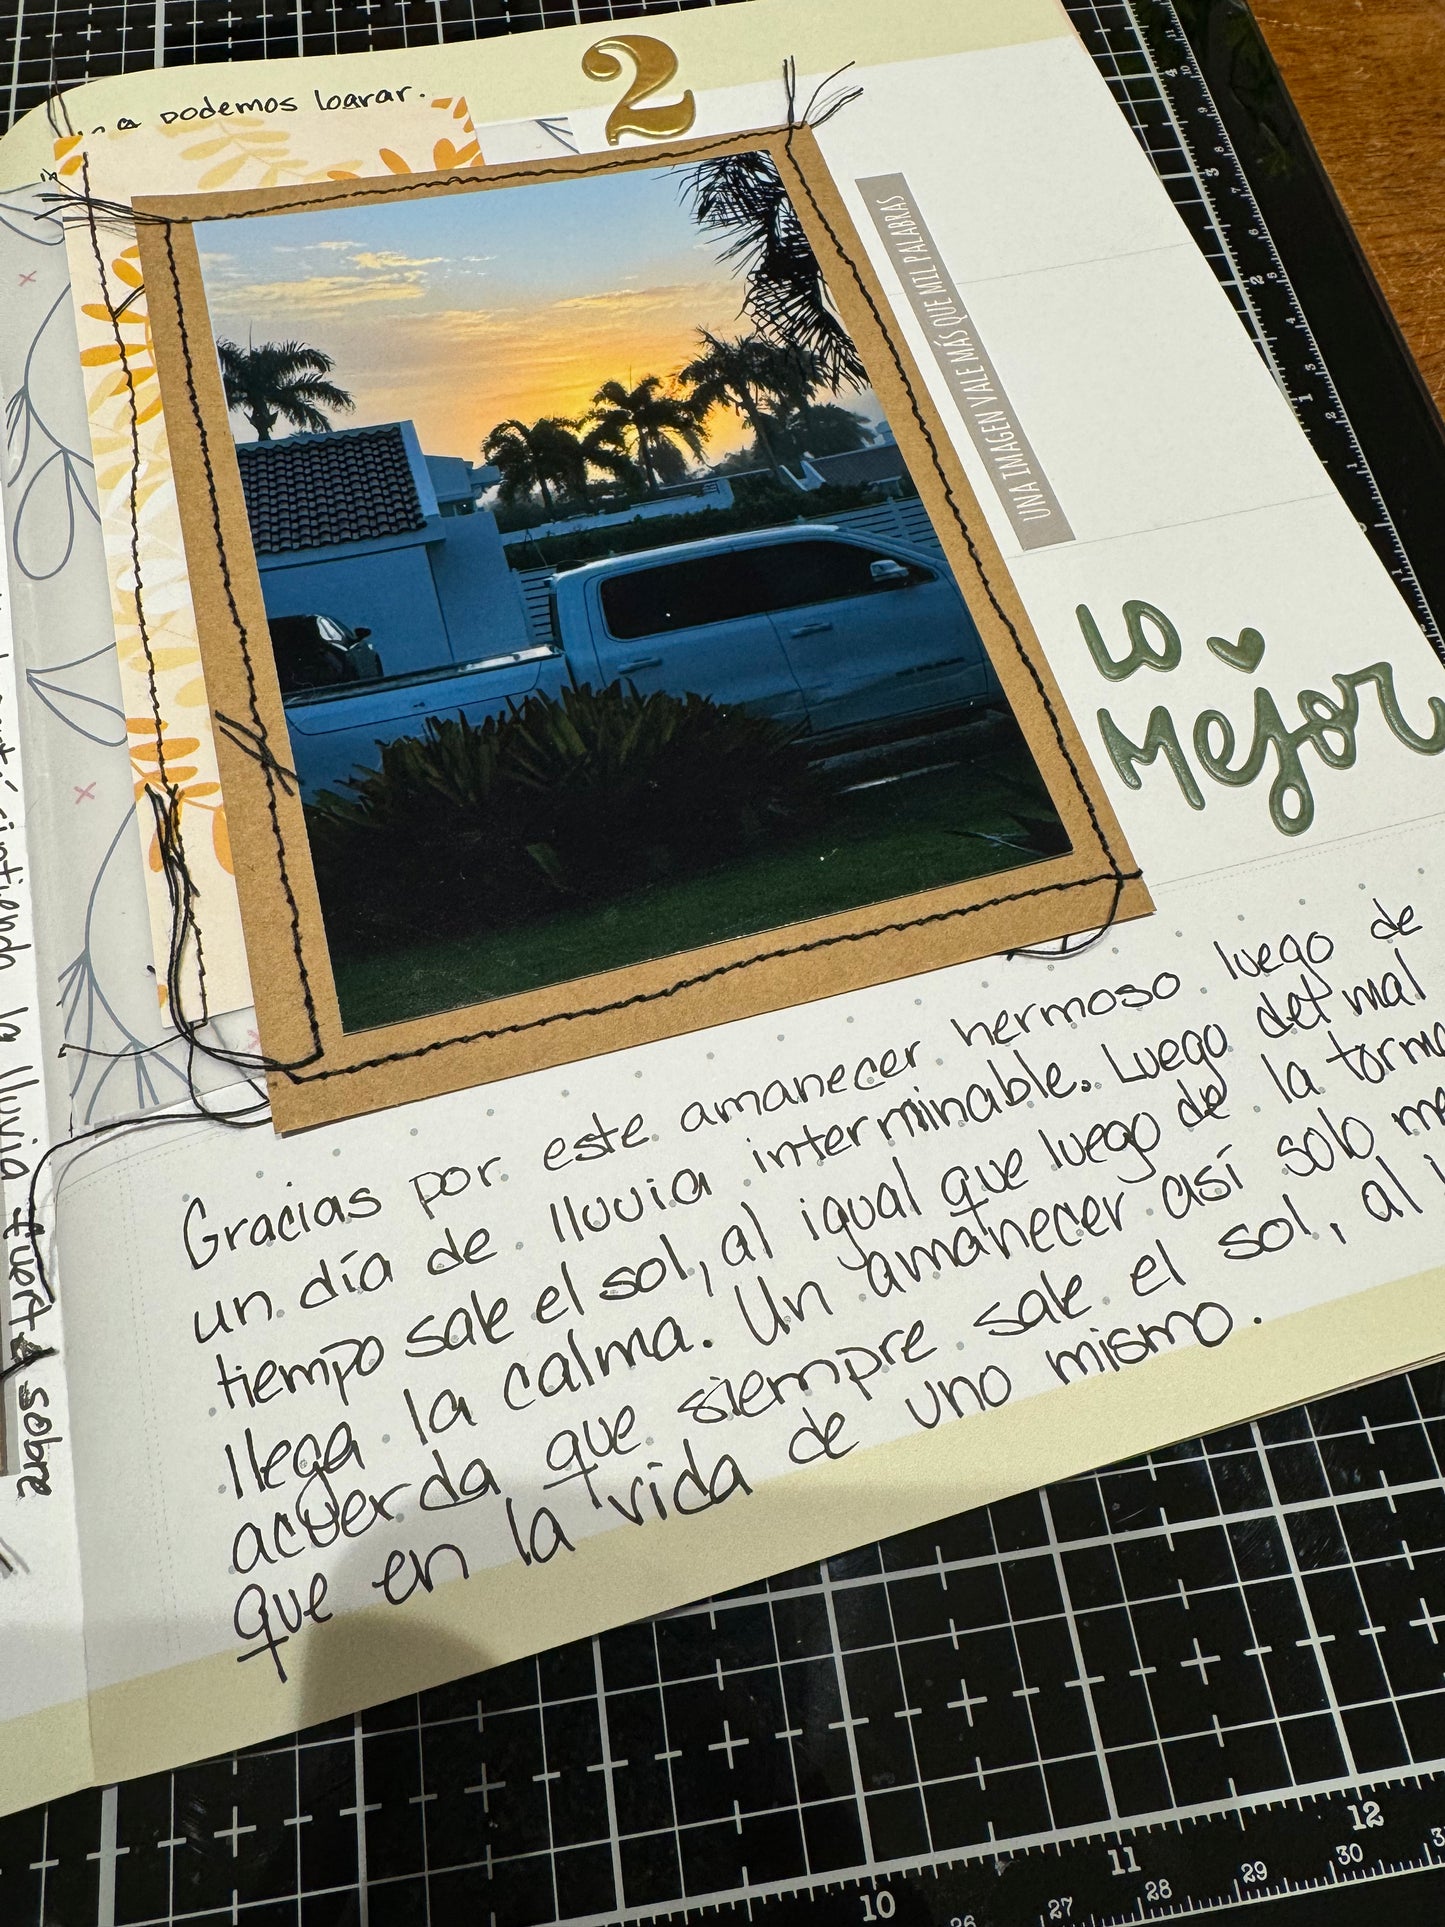 podemos loarar.
2
UNA IMAGEN VALE MÁS QUE MIL PALABRAS
LO
Mejor
Gracias por este amanecer hermoso luego de
un día de lluvia interminable. Luego del mal
tiempo sale el sol, al igual que luego de la
llega la calma. Un amanecer así solo
acuerda que siempre sale el sol, al
que en la vida de uno mismo.
la lluvia fuerte sobre
10
11
12
26
27
28
29
30